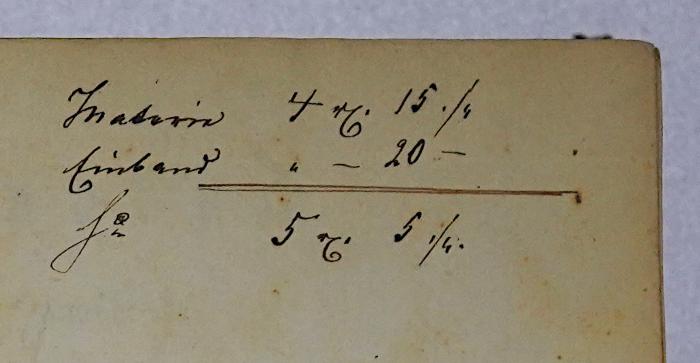 Materie 4 rℓ. 15 ./„
Einband „ – 20 –
Sa 5 rℓ. 5 ./„.